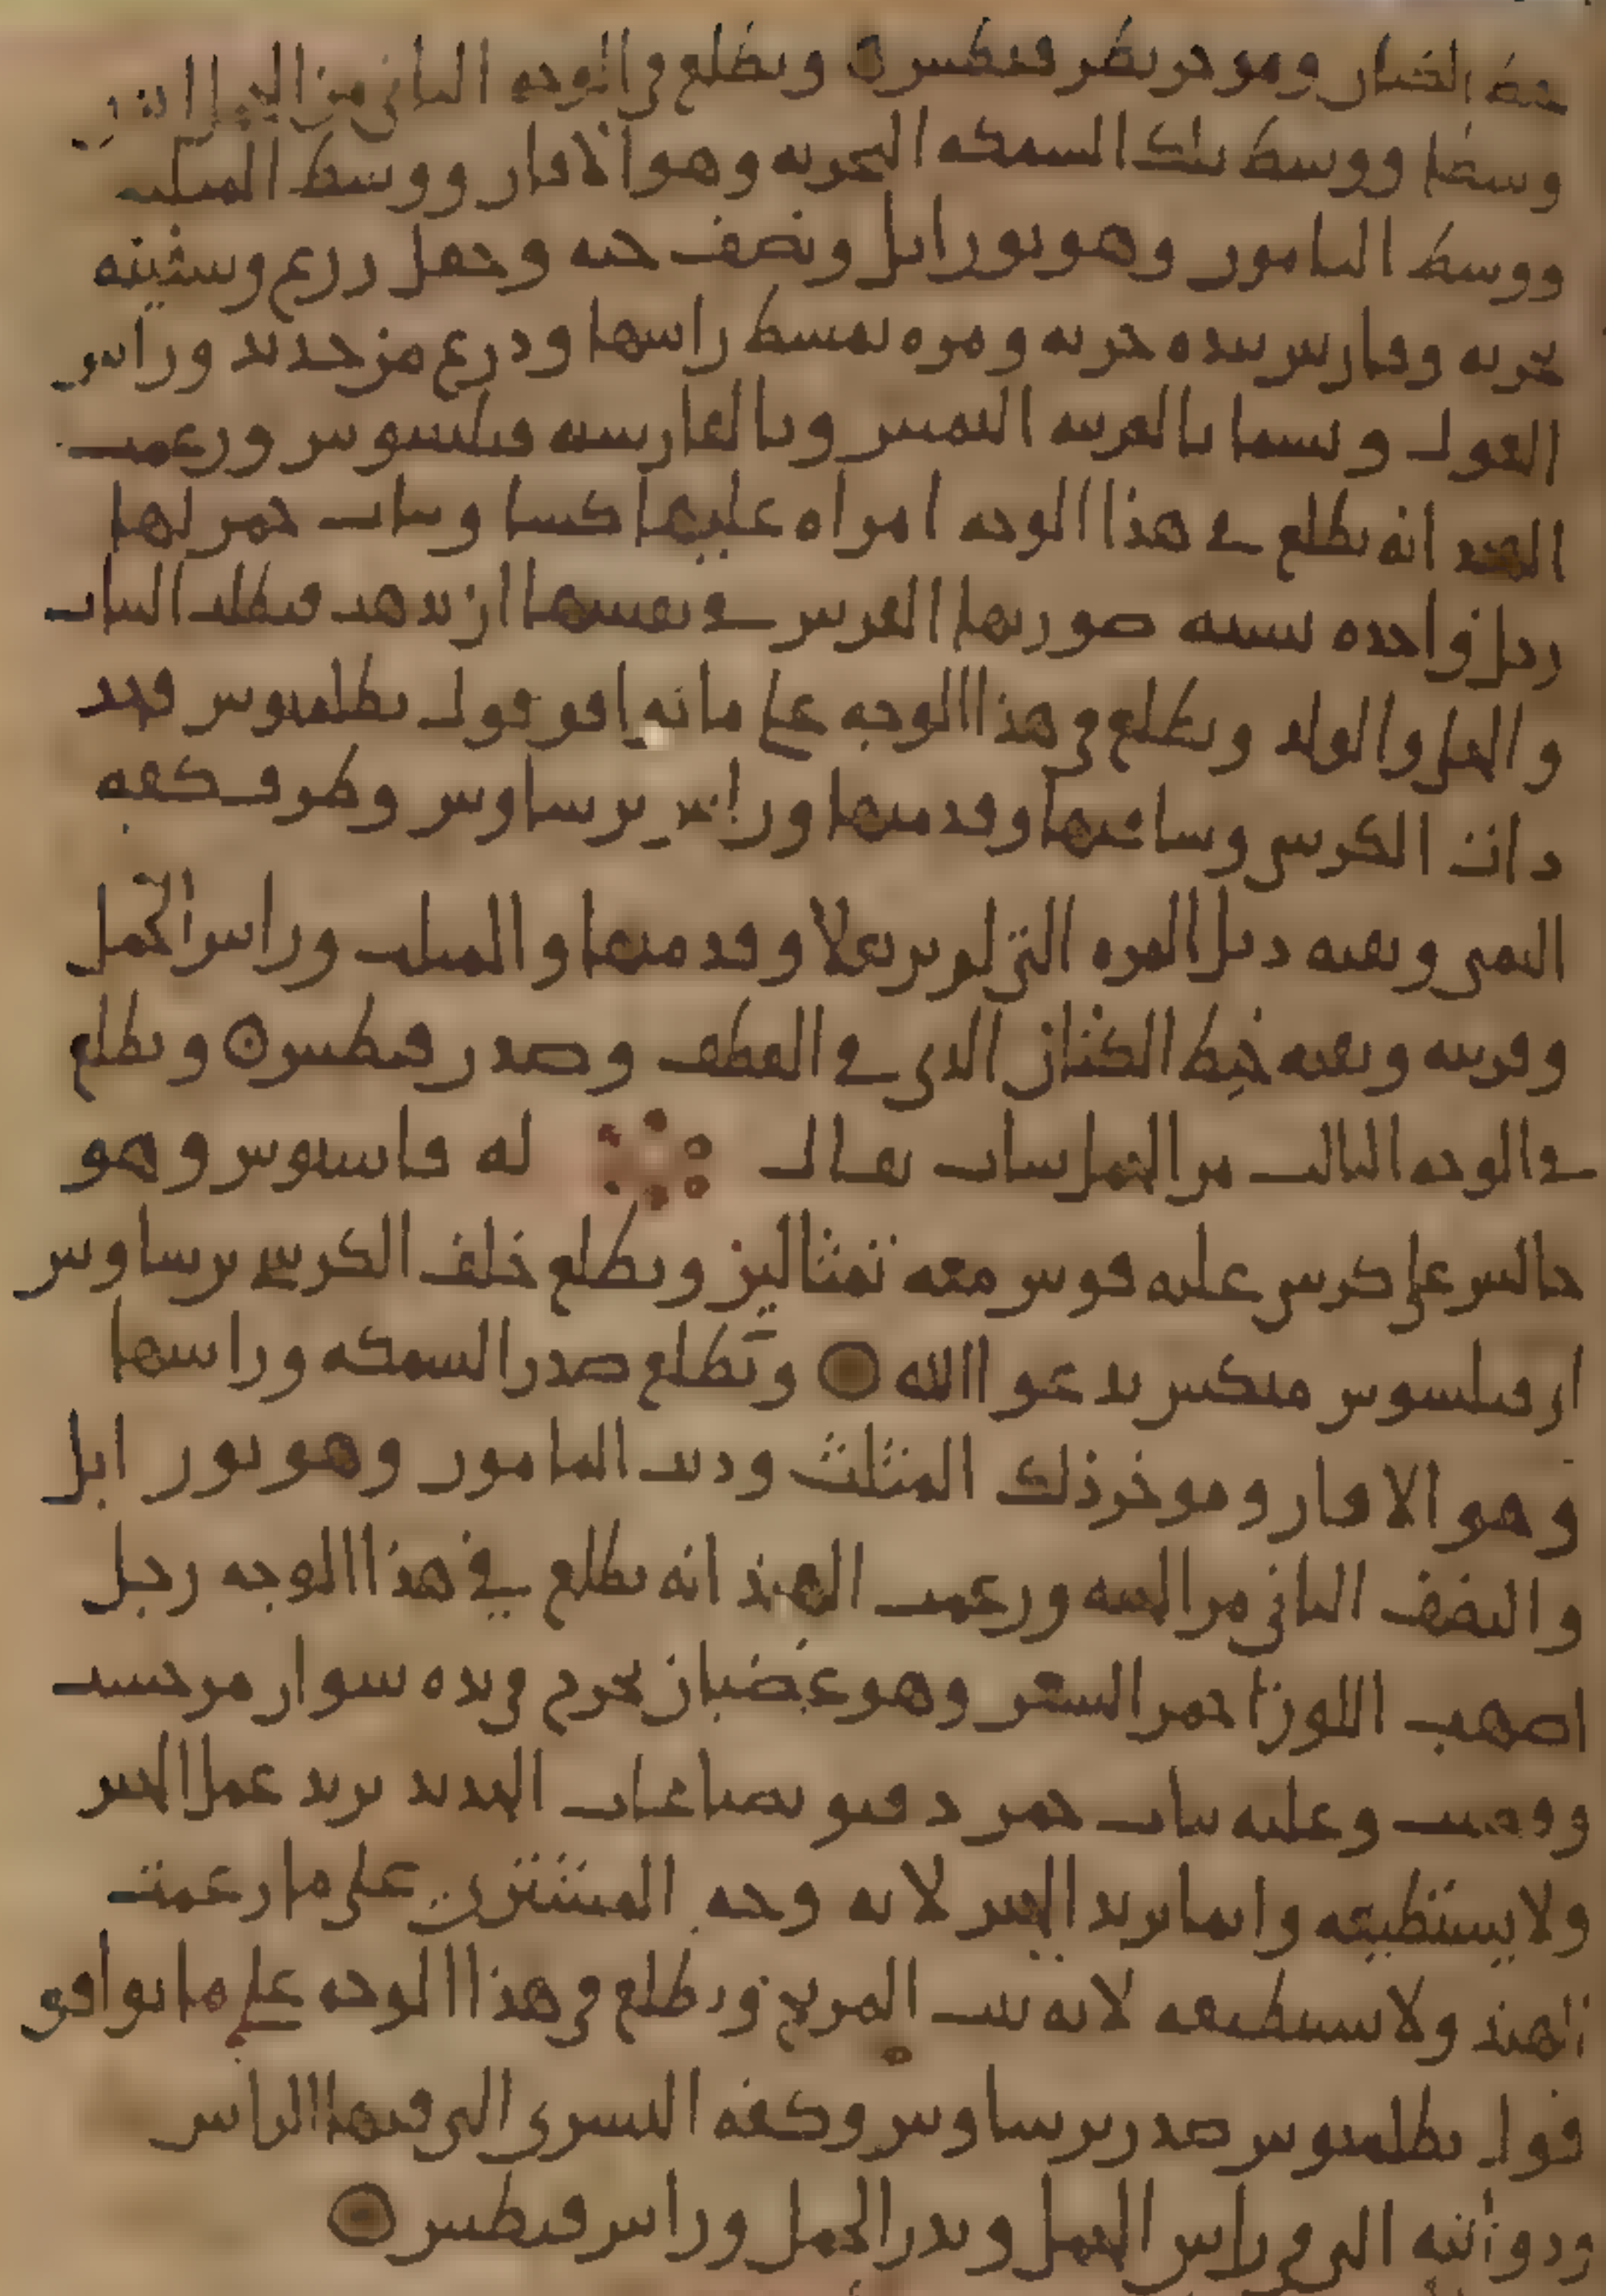 خيط الكتان وموخر بطن قيطس ويطلع في الوجه الثاني من الحمل
وسط ووسط تلك السمكة البحرية وهو الافار ووسط المثلث
ووسط البامور وهو ثور ابل ونصف حيه وحقل زرع وسفينه
بحريه وفارس بيده حربه ومره تمشط راسها ودرع من حديد وراس
الغول ويسما بالعربيه وبالفارسيه فيلسوس وزعمت
الهند انه يطلع في هذا الوجه امراه عليها كسا وثياب حمر لها
رجل واحده تشبه صورتها الفرس في نفسها ان تذهب فتطلب الثياب
والحلي والولد ويطلع في هذا الوجه على ما يوافق قول بطلميوس فخذ
ذات الكرسي وساقيها وقدميها وراس برساوس وطرف كفه
اليمنى وبقيه ذيل المره التي لم تر بعلا وقدميها والمثلث وراس الحمل
وقرنيه وبقيه خيط الكتان الذي في القطف وصدر قيطس ويطلع
في الوجه الثالث من الحمل شاب يقال له فاسيوس وهو
جالس على كرسي عليه فرس معه تمثالين ويطلع خلف الكرسي برساوس
ار فيلسوس منكس يدعوا الله وتطلع صدر السمكه وراسها
وهو الافار وموخر ذلك المثلث وذنب البامور وهو ثور ابل
والنصف الثاني من الحيه وزعمت الهند انه يطلع في هذا الوجه رجل
اصهب اللون احمر الشعر وهو غضبان يحرج في يده سوار من خشب
وقضيب وعليه ثياب حمر رفيق بصناعات الحديد يريد عمل الخير
ولا يستطيعه وانما يريد الخير لانه وجه المشتري على ما زعمت
الهند ولا يستطيعه لانه بيت المريخ ويطلع في هذا الوجه على ما يوافق
قول بطلميوس صدر برساوس وكفه اليسرى التي فيها الراس
وذوابته التي في راس الحمل وبدن الحمل وراس قيطس